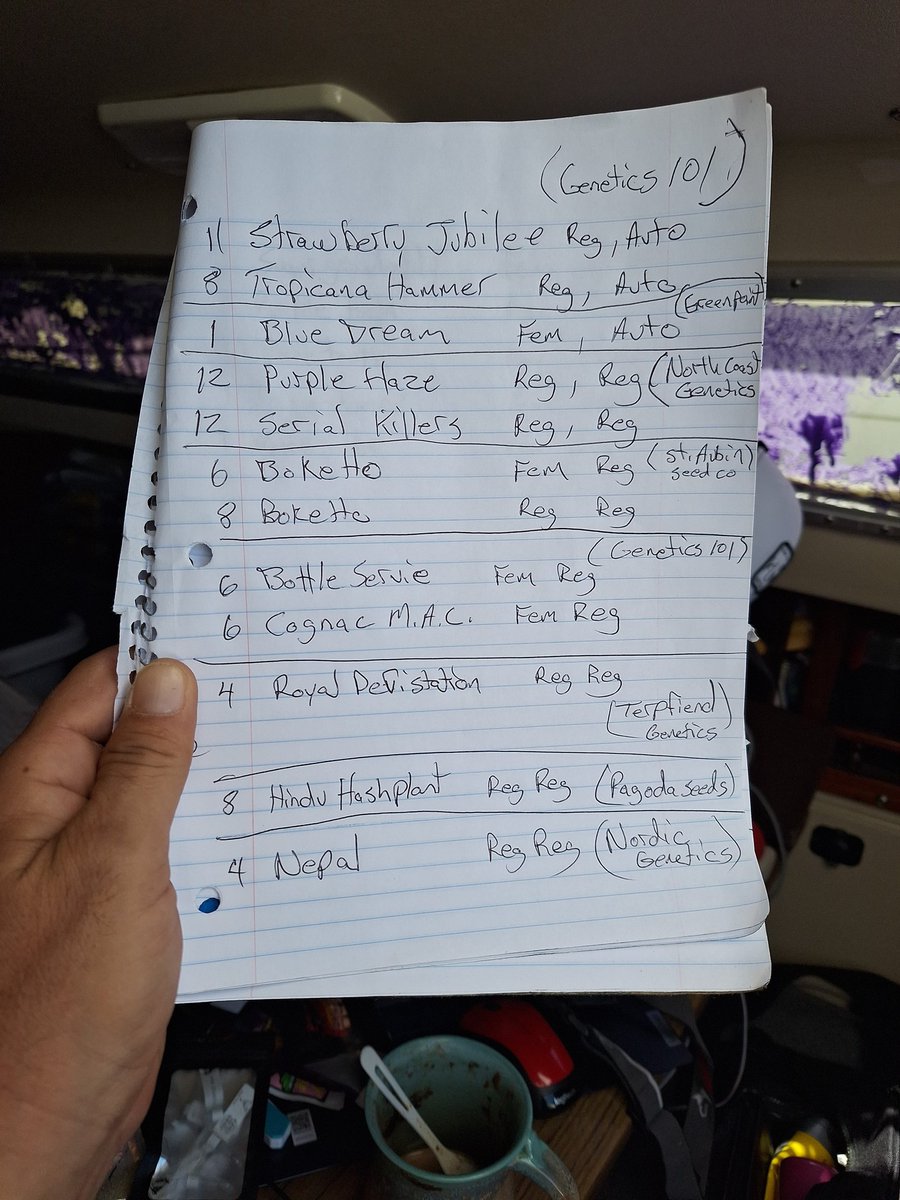 (Genetics 101)
11 Strawberry Jubilee Reg, Auto
8 Tropicana Hammer Reg, Auto
(Greenpoint)
1 Blue Dream Fem, Auto
12 Purple Haze Reg, Reg (North Coast
Genetics
12 Serial Killers Reg, Reg
6 Boketto Fem Reg (St. Aubin)
seed co
8 Boketto Reg Reg
(Genetics 101)
6 Bottle Servie Fem Reg
6 Cognac M.A.C. Fem Reg
4 Royal Devistation Reg Reg
(Terpfiend)
Genetics
8 Hindu Hashplant Reg Reg (Pagoda seeds)
4 Nepal Reg Reg (Nordic
Genetics)